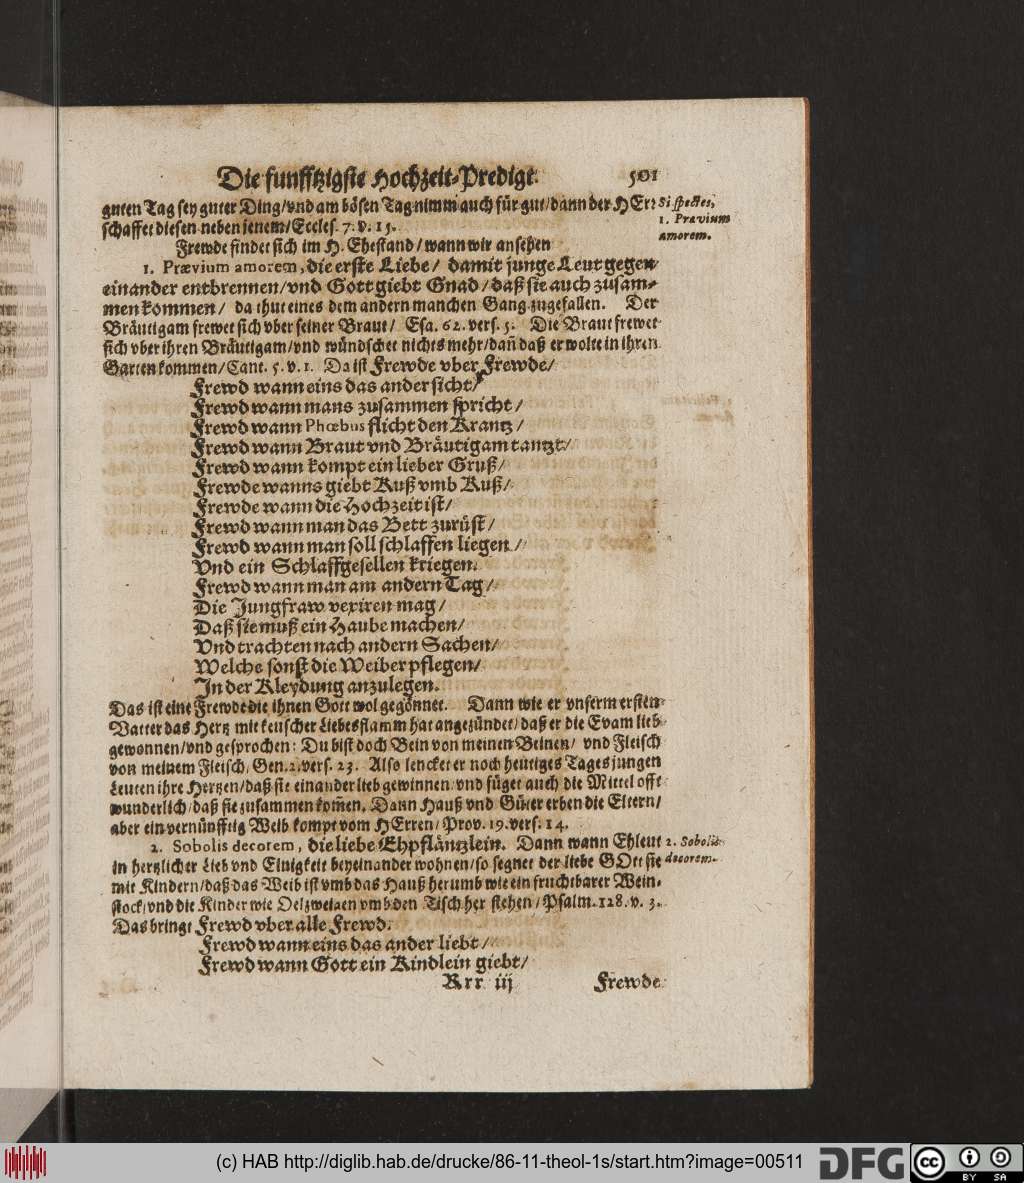 Die funfftzigste Hochzeit-Predigt. 501
guten Tag sey guter Ding/vnd am bösen Tag nimm auch für gut/dann der HErr
schaffet diesen neben jenem/Eccles. 7. v. 15.
Si spectes,
1. Prævium
amorem.
Frewde findet sich im H. Ehestand/wann wir ansehen
1. Prævium amorem, die erste Liebe/ damit junge Leut gegen
einander entbrennen/vnd Gott giebt Gnad/daß sie auch zusam-
men kommen/ da thut eines dem andern manchen Gang zugefallen. Der
Bräutigam frewet sich vber seiner Braut/ Esa. 62. vers. 5. Die Braut frewet
sich vber ihren Bräutigam/vnd wündschet nichts mehr/dañ daß er wolte in ihren
Garten kommen/Cant. 5. v. 1. Da ist Frewde vber Frewde/
Frewd wann eins das ander sicht/
Frewd wann mans zusammen spricht/
Frewd wann Phœbus flicht den Krantz/
Frewd wann Braut vnd Bräutigam tantzt/
Frewd wann kompt ein lieber Gruß/
Frewde wanns giebt Kuß vmb Kuß/
Frewde wann die Hochzeit ist/
Frewd wann man das Bett zurüst/
Frewd wann man soll schlaffen liegen/
Vnd ein Schlaffgesellen kriegen.
Frewd wann man am andern Tag/
Die Jungfraw vexiren mag/
Daß sie muß ein Haube machen/
Vnd trachten nach andern Sachen/
Welche sonst die Weiber pflegen/
In der Kleydung anzulegen.
Das ist eine Frewde die ihnen Gott wol gegönnet. Dann wie er vnserm ersten
Vatter das Hertz mit keuscher Liebesflamm hat angezündet/daß er die Evam lieb
gewonnen/vnd gesprochen: Du bist doch Bein von meinen Beinen/ vnd Fleisch
von meinem Fleisch, Gen. 2. vers. 23. Also lencket er noch heutiges Tages jungen
Leuten ihre Hertzen/daß sie einander lieb gewinnen/vnd füget auch die Mittel offt
wunderlich/daß sie zusammen kom̃en. Dann Hauß vnd Güter erben die Eltern/
aber ein vernünfftig Weib kompt vom HErren/Prov. 19. vers. 14.
2. Sobolis decorem, die liebe Ehpfläntzlein. Dann wann Ehleut
2. Sobolis
decorem.
in hertzlicher Lieb vnd Einigkeit beyeinander wohnen/so segnet der liebe GOtt sie
mit Kindern/daß das Weib ist vmb das Hauß herumb wie ein fruchtbarer Wein-
stock/vnd die Kinder wie Oelzweigen vmb den Tisch her stehen/Psalm. 128. v. 3.
Das bringt Frewd vber alle Frewd.
Frewd wann eins das ander liebt/
Frewd wann Gott ein Kindlein giebt/
Rrr iij Frewde
(c) HAB http://diglib.hab.de/drucke/86-11-theol-1s/start.htm?image=00511
DFG
cc
BY SA